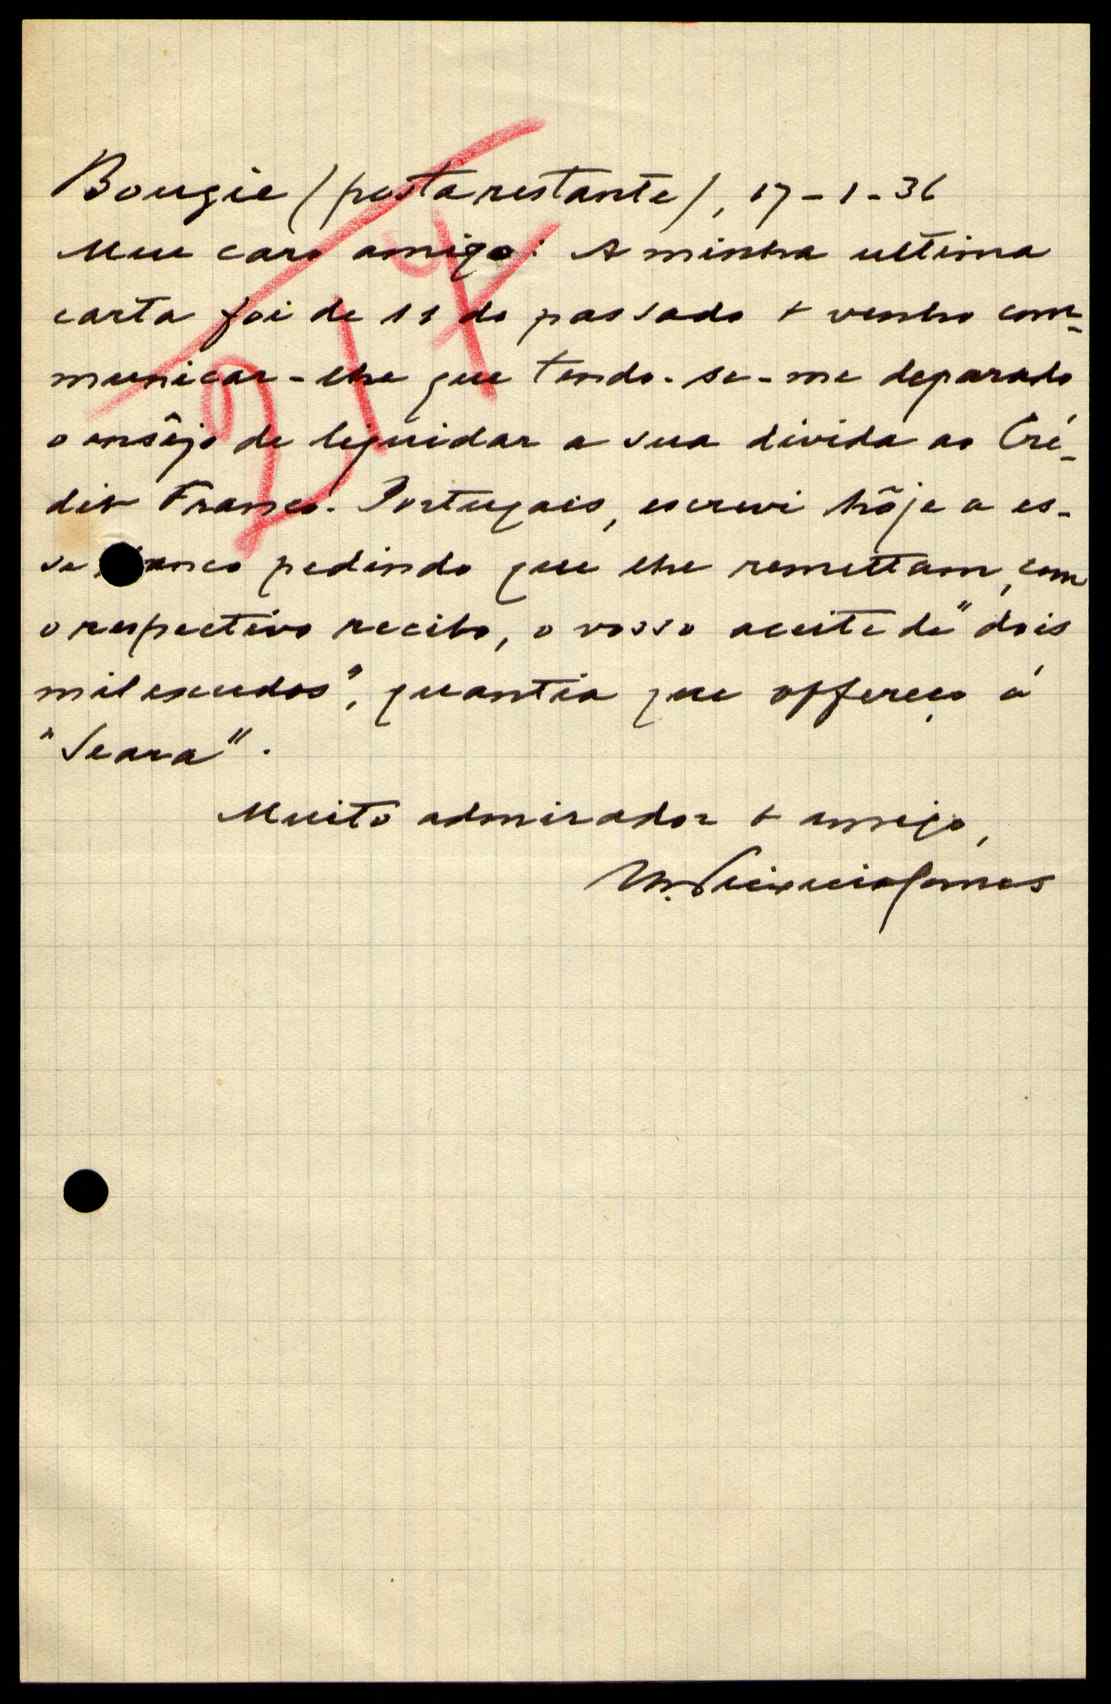 Bougie (posta restante), 17-1-36
Meu caro amigo: A minha ultima
carta foi de 11 do passado & venho com-
municar-lhe que tendo-se-me deparado
o ensêjo de liquidar a sua divida ao Cré-
dit Franco-Portugais, escrevi hôje a es-
se banco pedindo que lhe remettam, com
o respectivo recibo, o vosso aceite de "dois
mil escudos", quantia que offereço á
"Seara".
Muito admirador & amigo,
M. Teixeira Gomes